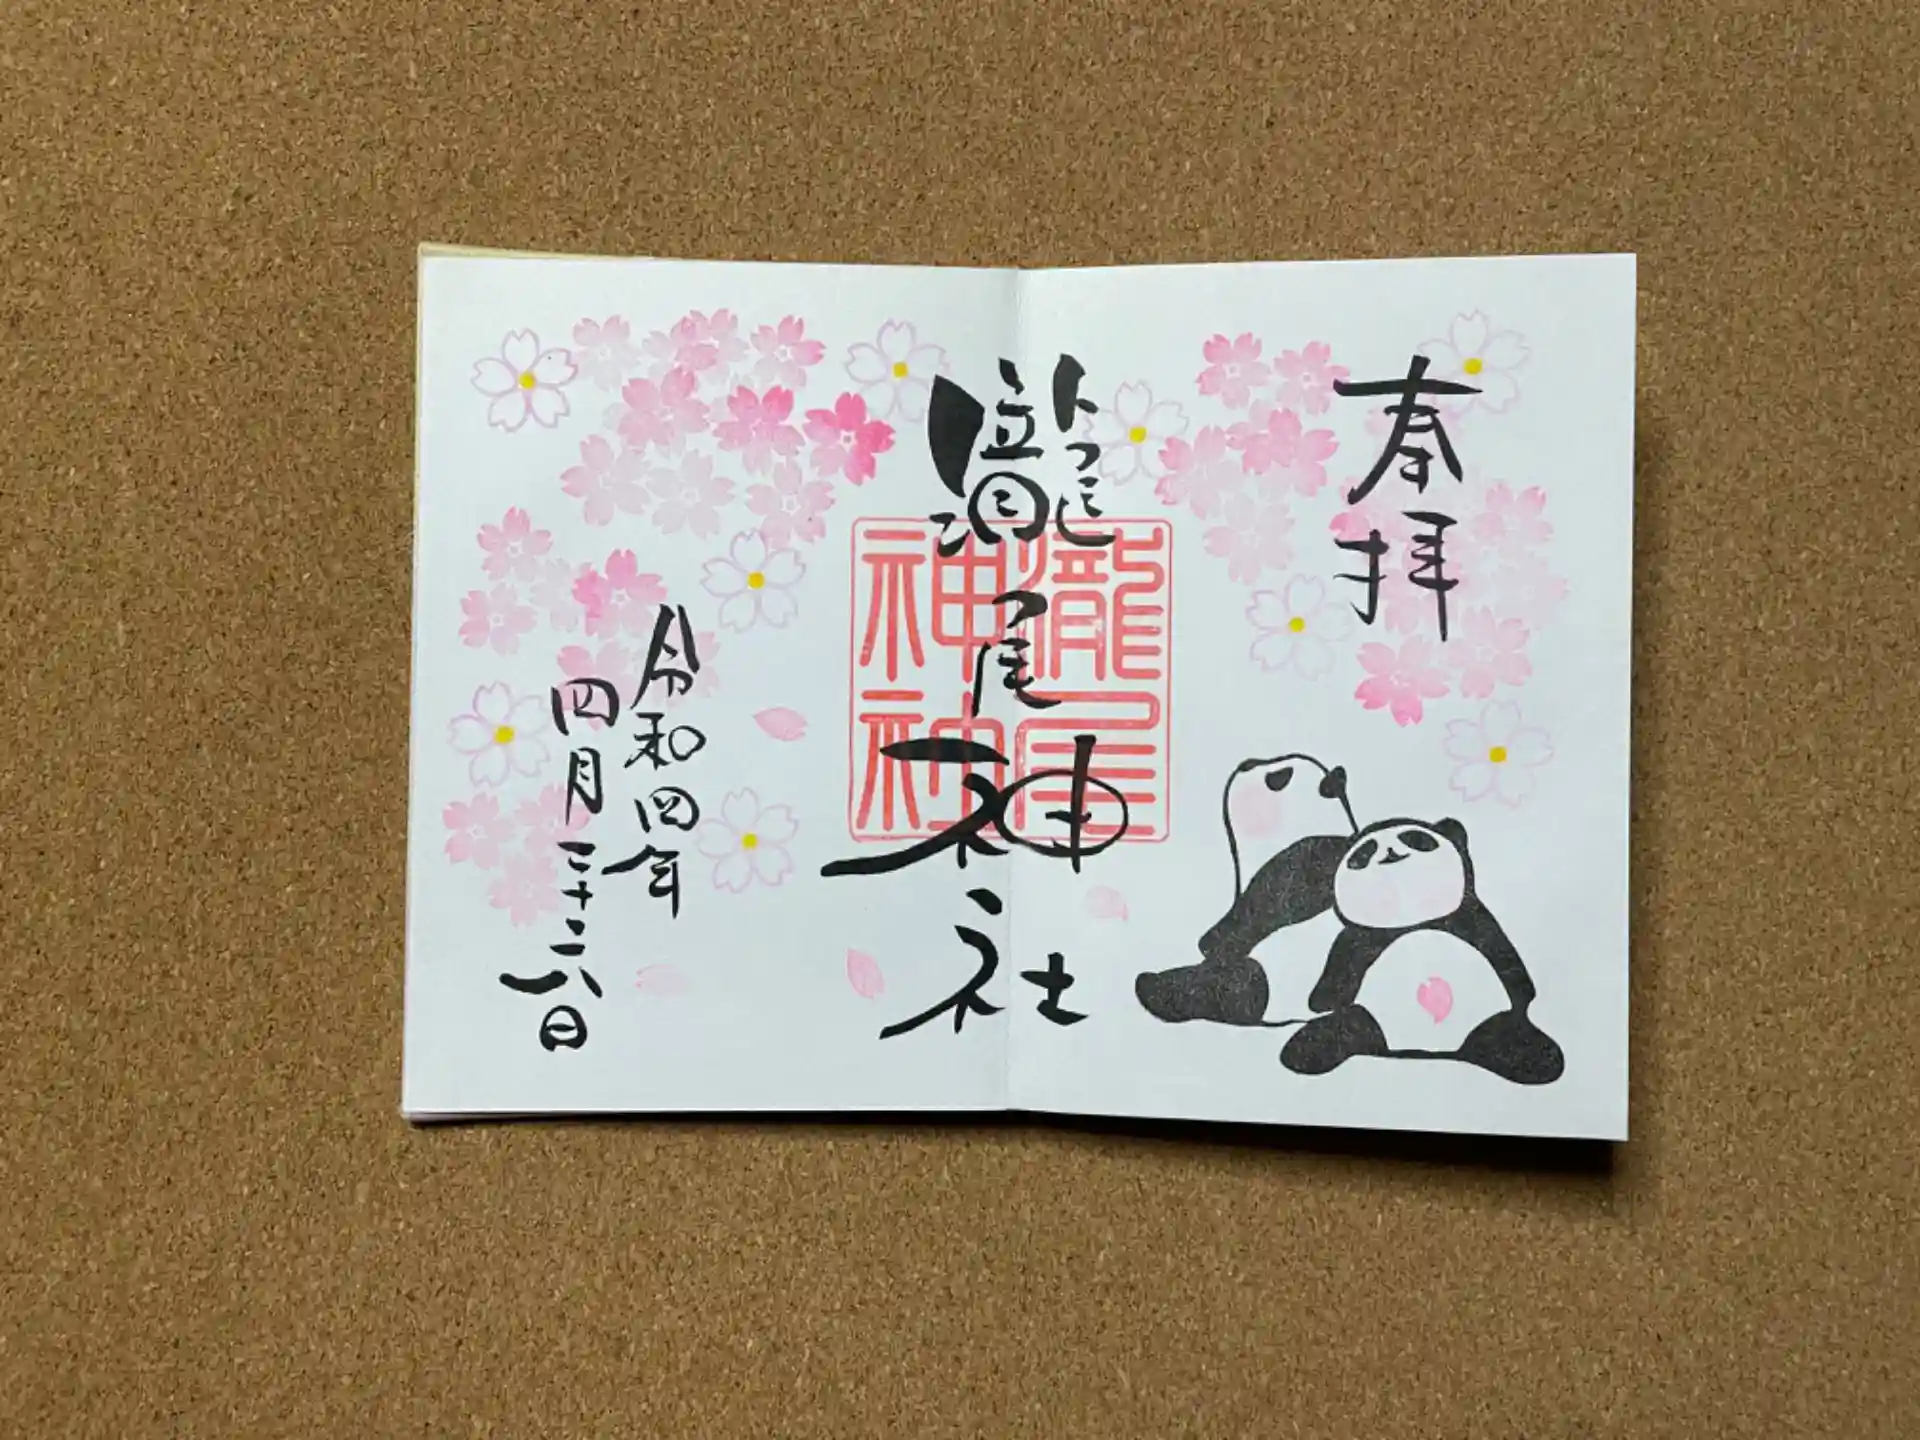 奉拝
瀧尾神社
瀧尾
神社
令和四年
四月二十六日